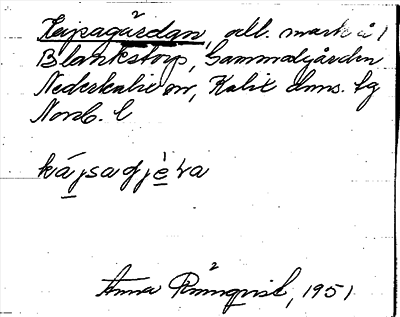 Kajsagårdan, all. mark å 1
Blankstorp, Gammalgården
Nederkalix sn, Kalix
Norrb. l
kájsagjèra
Anna Rönnqvist, 1951